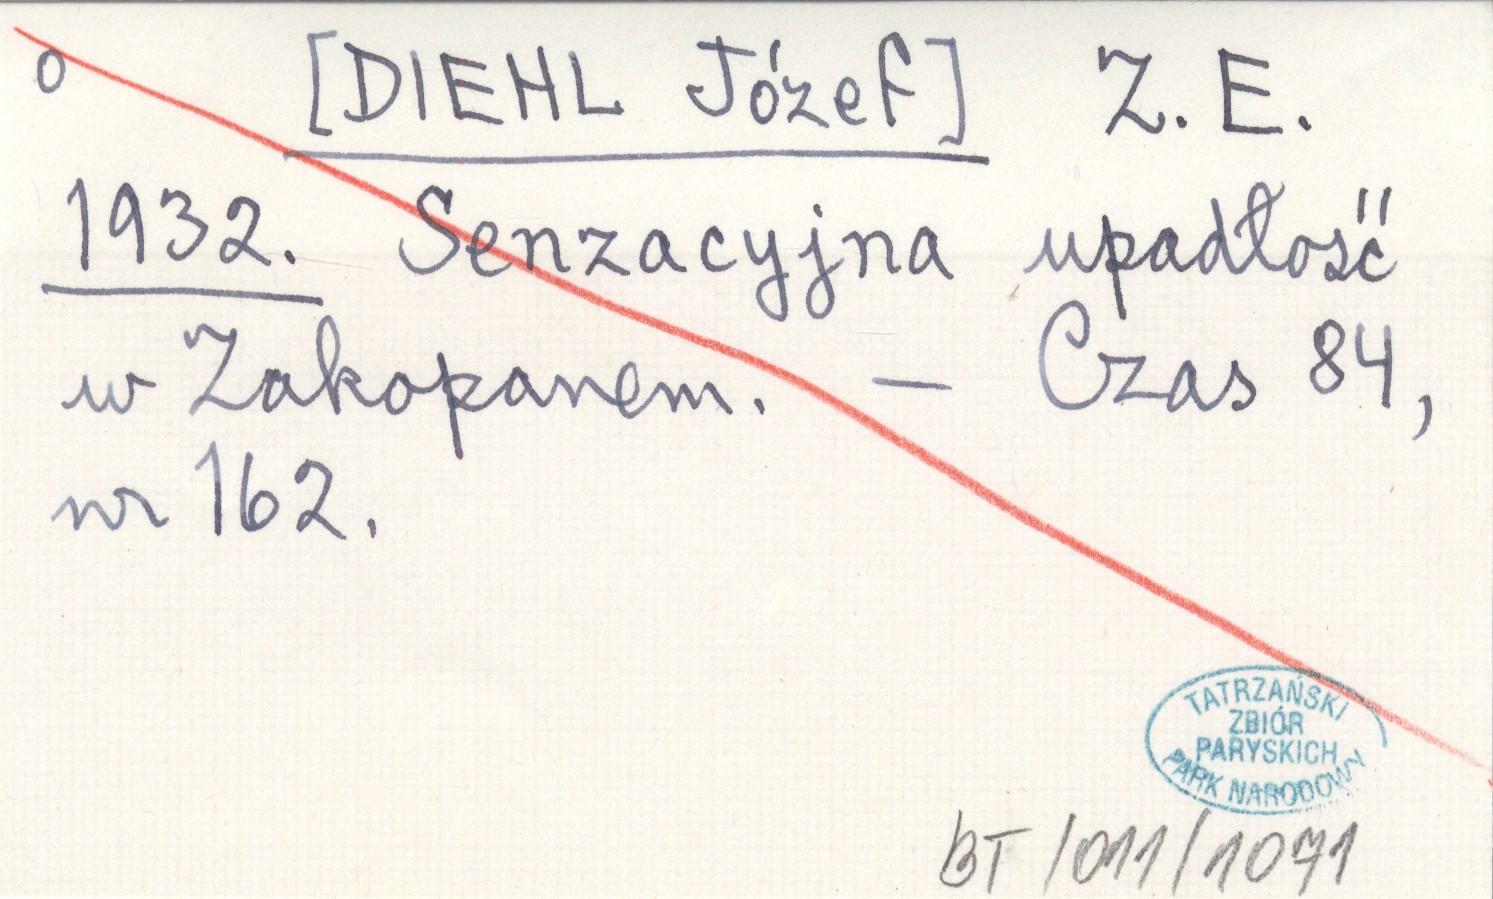 o [DIEHL Józef] Z. E.
1932. Senzacyjna upadłość
w Zakopanem. — Czas 84,
nr 162.
TATRZAŃSKI
ZBIÓR
PARYSKICH
PARK NARODOWY
BT/011/1071